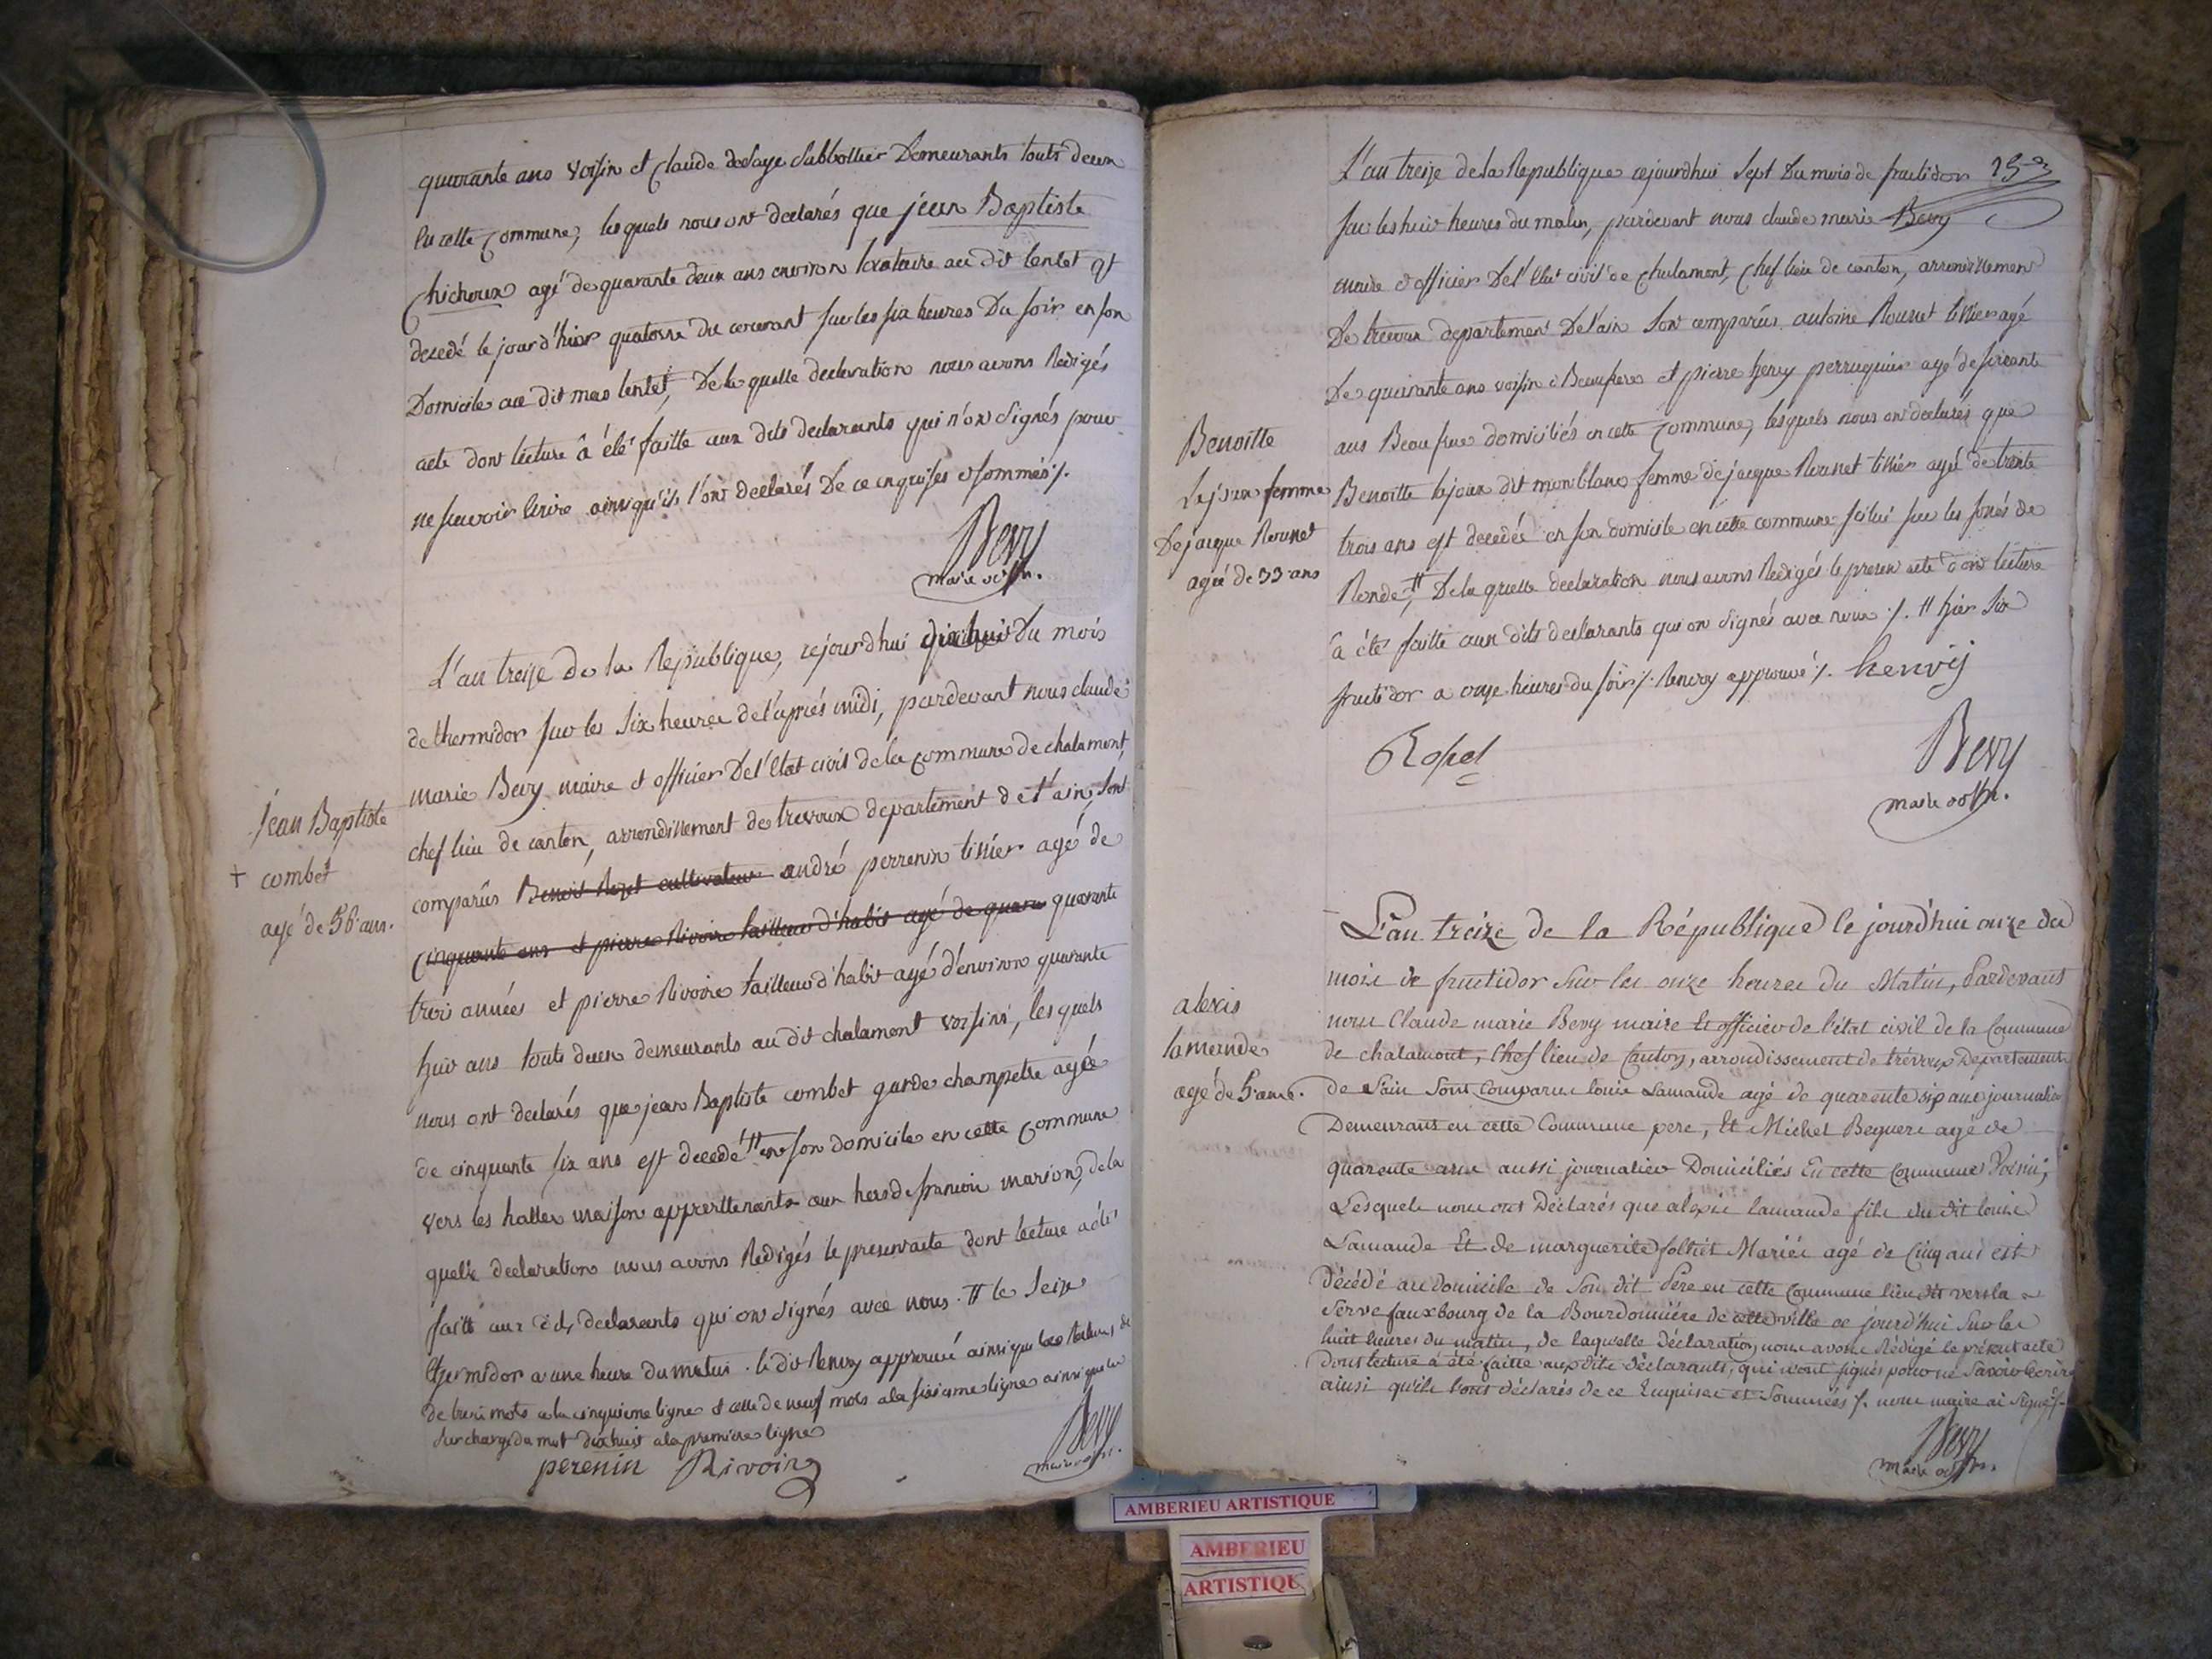 quarante ans voisin et Claude delaye Sabbottier Demeurants touts deux
En cette Commune, lesquels nous ont declarés que jean Baptiste
Chichoux agé de quarante deux ans environ locataire au dit lentet
decedé le jour d'hier quatorse du courant sur les six heures Du soir en son
Domicile au dit mas lentet, De la quelle declaration nous avons Redigés
acte dont lécture â été faitte aux dits declarants qui n'on Signés pour
ne sçavoir Ecrire ainsi qu'ils l'ont declarés De ce enquises et sommés ⁒
Bevy
maire
L'an treize de la Republique, cejourdhui dixhuit Du mois
de thermidor sur les Six heures de l'après midi, pardevant nous claude
marie Bevy maire et officier De l'Etat civil de la Commune de chalamont,
chef lieu de canton, arrondissement de trevoux departement de l'ain, Sont
comparûs Benoit Rozet cultivateur andré perrenin tissier agé de
Cinquante ans et pierre Rivoire tailleur d'habit agé de quara quarante
trois années et pierre Rivoire tailleur d'habit agé d'environ quarante
huit ans touts deux demeurants au dit chalamont voisins, les quels
nous ont declarés que jean Baptiste combet garde champetre agée
de cinquante six ans est decedé # en son domicile en cette Commune
vers les halles maison appartenante aux hers de francois marion, de la
quelle declaration nous avons Redigés le present acte dont lecture a été
faitte aux dits declarants qui on signés avec nous . # le Seize
thermidor a une heure du matin . le dit Renvoy approuvé ainsi que les Ratures de
de trois mots a la cinquieme ligne et celle de neuf mots a la sixieme ligne ainsi que la
Surcharge du mot dixhuit a la premiere ligne
perenin Rivoire
Bevy
maire
jean Baptiste
+ combet
agé de 56 ans.
L'an treize de la Republique cejourdhui Sept Du mois de fructidor
sur les huit heures du matin, pardevant nous claude marie Bevy
maire et officier De l'Etat civil de Chalamont, Chef lieu de canton, arrondissement
De trevoux departement De l'ain Sont comparûs antoine Rousset tissier agé
De quarante ans voisin et Beaufrere et pierre henry perruquier agé de soixante
ans Beau frere domiciliés en cette Commune, lesquels nous ont declarés que
Benoitte lajoux dit monblanc femme de jacque Rousset tissier agée de trente
trois ans est decedée en son domicile en cette commune scitué sur les fossés de
Ronde, # De la quelle declaration nous avons Redigés le present acte dont lecture
a été faitte aux dits declarants qui on signés avec nous ⁒ # hier Six
fructidor a onze heures du soir ⁒ Renvoy approuvé ⁒ henrÿ
Bevy
maire
Benoitte
Lajoux femme
De jacque Rousset
agée de 33 ans
L'an treize de la République le jourd'hui onze du
mois de fructidor sur les onze heures du Matin, Pardevant
nous Claude marie Bevy maire Et officier de l'état civil de la Commune
de chalamont, Chef lieu de Canton, arrondissement de trévoux Departement
de l'ain Sont Comparus louis Lamande agé de quarente six ans journalier
Demeurant en cette Commune pere, Et Michel Beguere agé de
quarente ans aussi journalier Domiciliés En cette Commune Voisin,
Lesquels nous ont Déclarés que alexis lamande fils du dit louis
Lamande Et de marguerite folliet Mariés agé de Cinq ans est
Décédé au domicile de Son dit Père en cette Commune lieu dit vers la
Serve fauxbourg de la Bourdonniére de cette ville ce jourd'hui sur les
huit heures du matin, de laquelle Déclaration, nous avons Rédigé le présent acte
dont lecture a été faitte aux dits déclarants, qui n'ont signés pour ne savoir Ecrire
ainsi qu'ils l'ont déclarés de ce Enquises et Sommées ⁒ nous maire ai signé ⁒
Bevy
maire
alexis
lamande
agé de 5 ans.
AMBERIEU ARTISTIQUE
AMBERIEU
ARTISTIQU